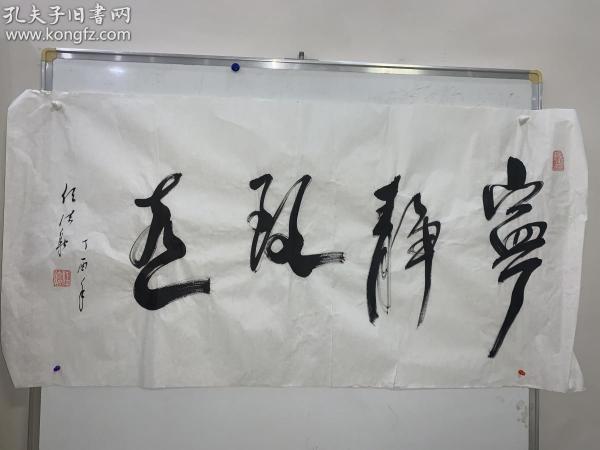 孔夫子旧书网
www.kongfz.com
寧靜致远
丁酉年